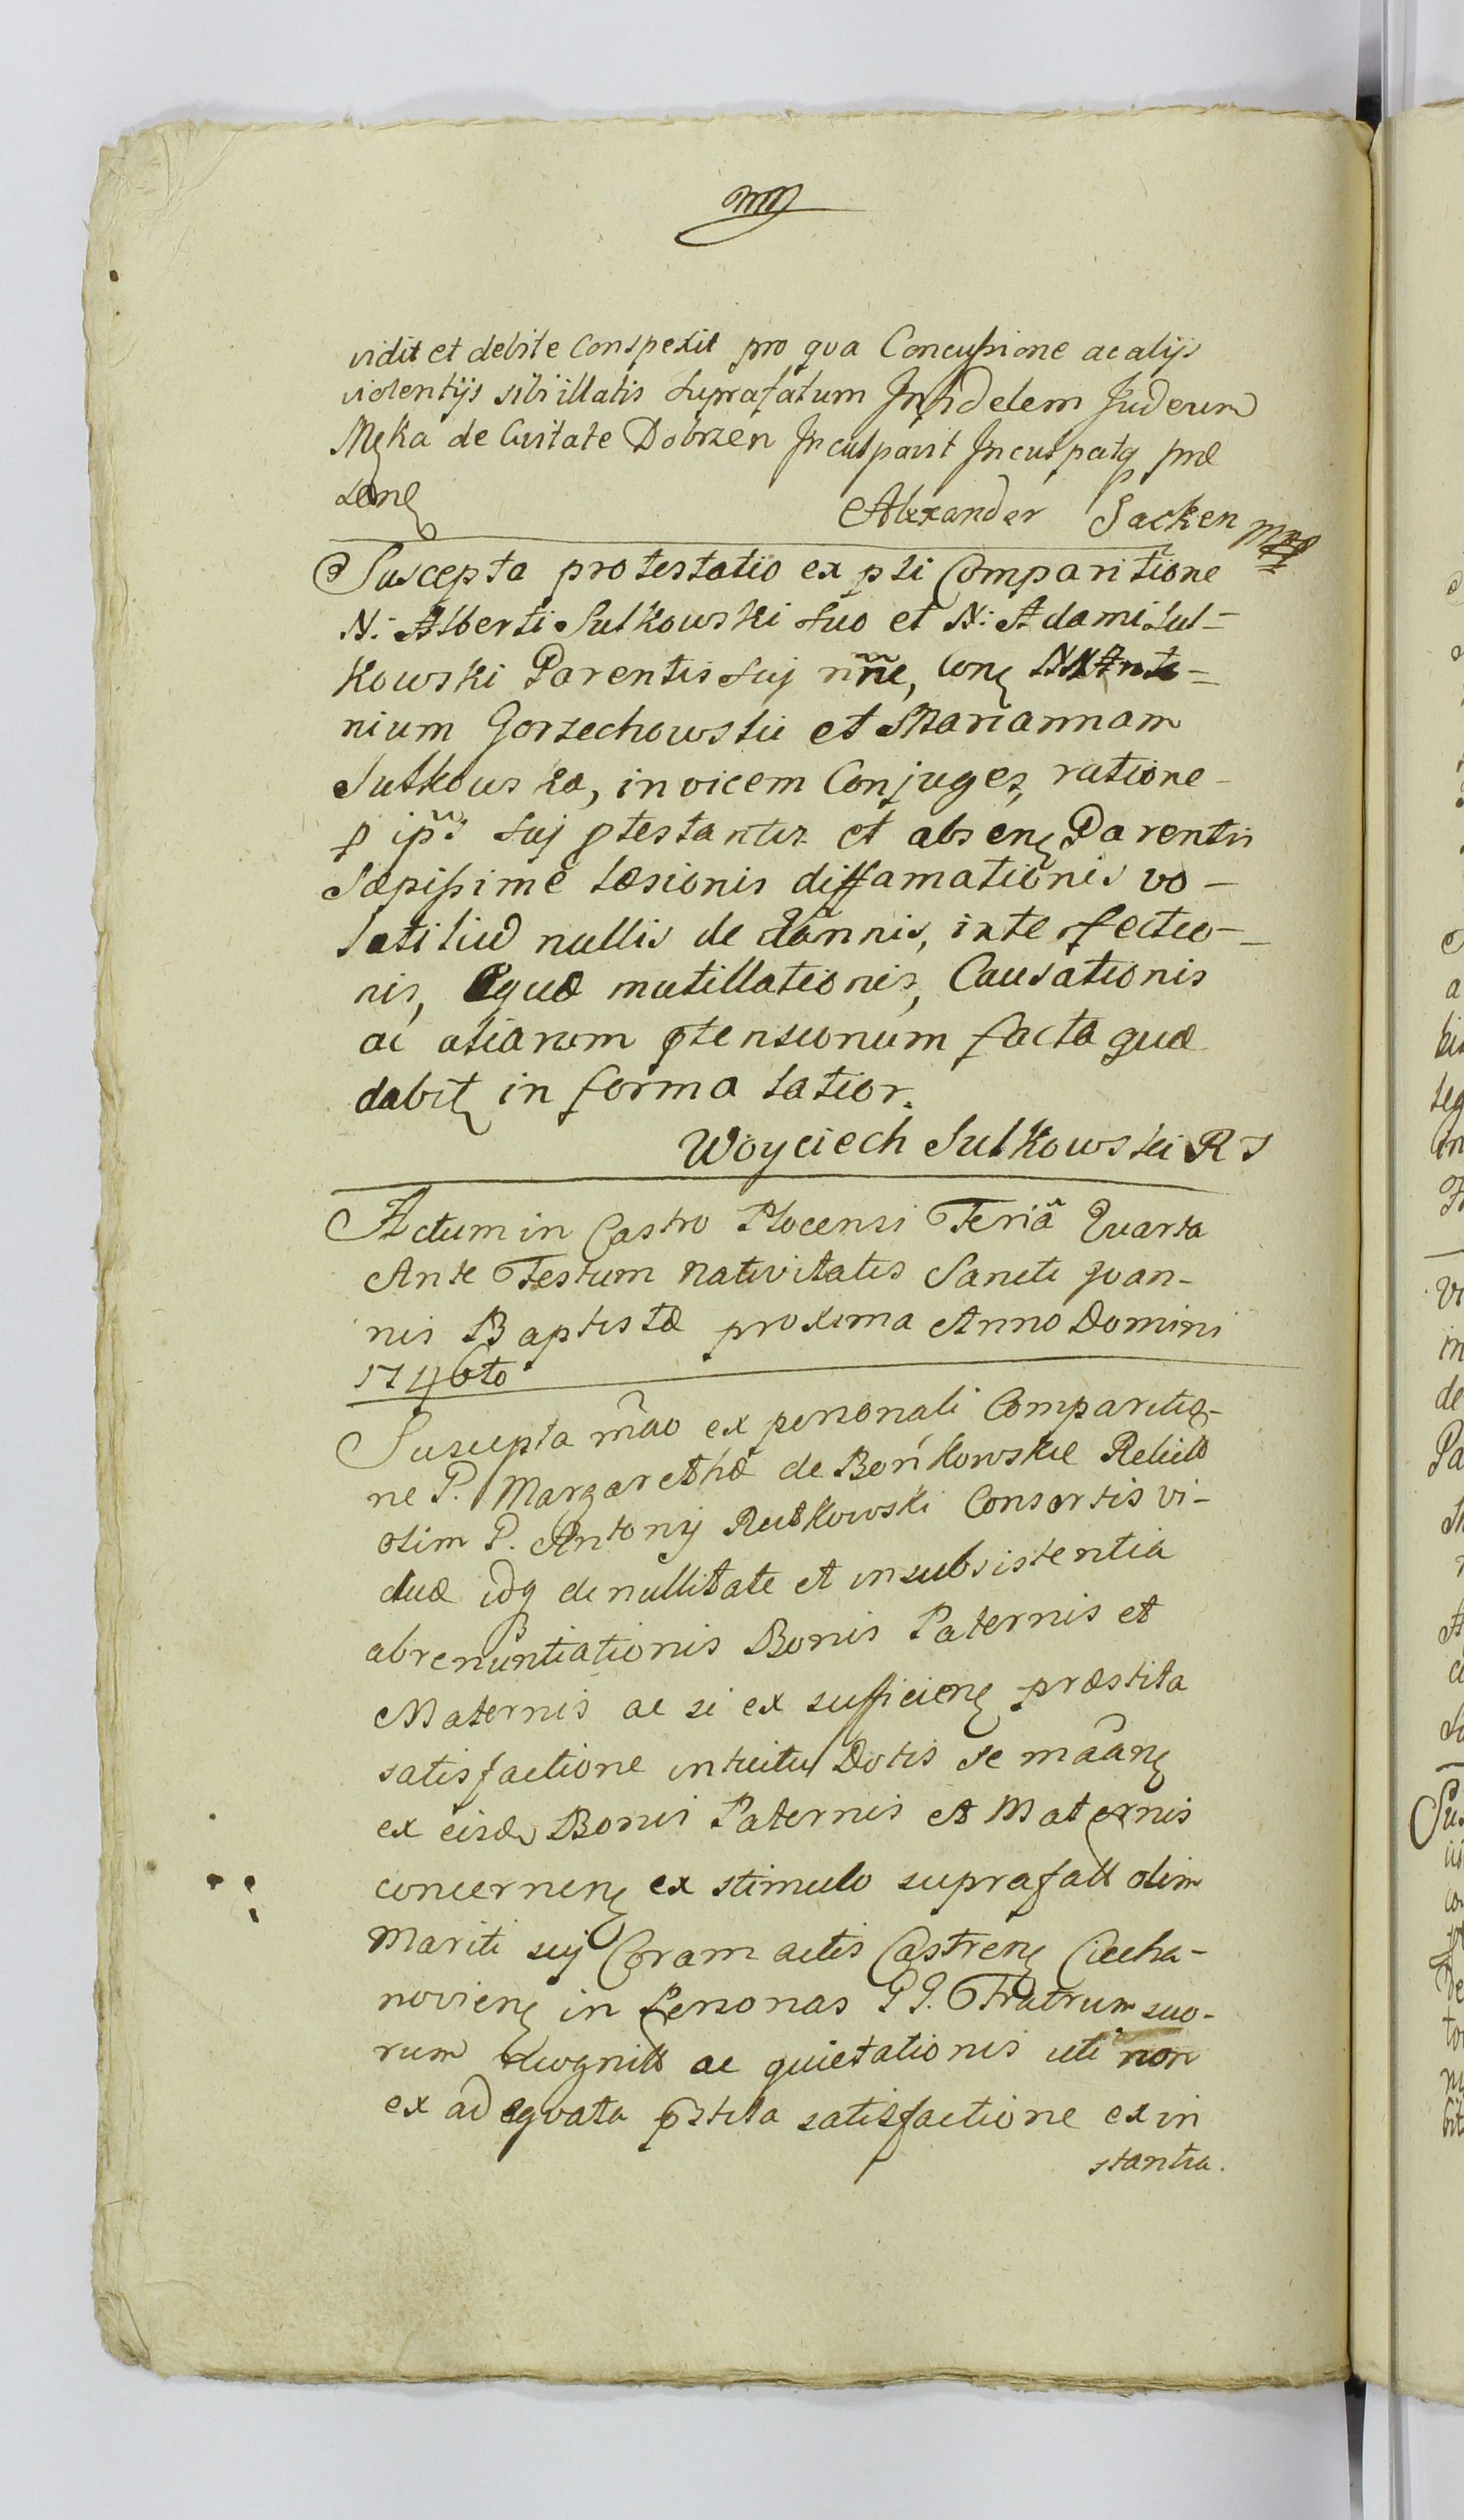 vidit et debite Conspexit pro qua Concussione ac alijs
violentijs sibi illatis suprafatum Infidelem Judeum
Meka de Civitate Dobrzen Inculpavit Inculpatq prae
senę
Alexander Sacken mpp
Suscepta protestatio ex psli Comparitione
N: Alberti Sulkowski suo et N: Adami Sul=
kowski Parentis suj nñe, Conę NN Anto=
nium Gorzechowski et Mariannam
Sulkowska, invicem Conjuges, ratione
p ip̃s suj ptestantis et absenę Parentis
Sæpissime læsionis diffamationis vo-
latiliu͠ nullis de dam̃nis, interfectio-
nis, Equæ mutillationis, Causationis
ac aliarum ptensionum facta quæ
dabitę in forma latior.
Woyciech Sulkowski R S
Actum in Castro Plocensi Feriã Quarta
Ante Festum nativitatis Sancti Joan-
nis Baptistæ proxima Anno Domini
1746to
Suscepta mãao ex personali Comparitio-
ne P. Margarethæ de Bońkowskie Relictæ
olim P. Antonij Rutkowski Consortis vi-
duæ idq de nullitate et insubsistentia
abrenuntiationis Bonis Paternis et
Maternis ac si ex sufficienę præstita
satisfactione intuitu Dotis se mãanę
ex eisde͠ Bonis Paternis et Maternis
concernenę ex stimulo suprafatt olim
Mariti suj Coram actis Castrenę Ciecha-
novienę in Personas PP. Fratrum suo-
rum recognitt ac quietationis uti non
ex adequata p̃stita satisfactione ex in
stantia.